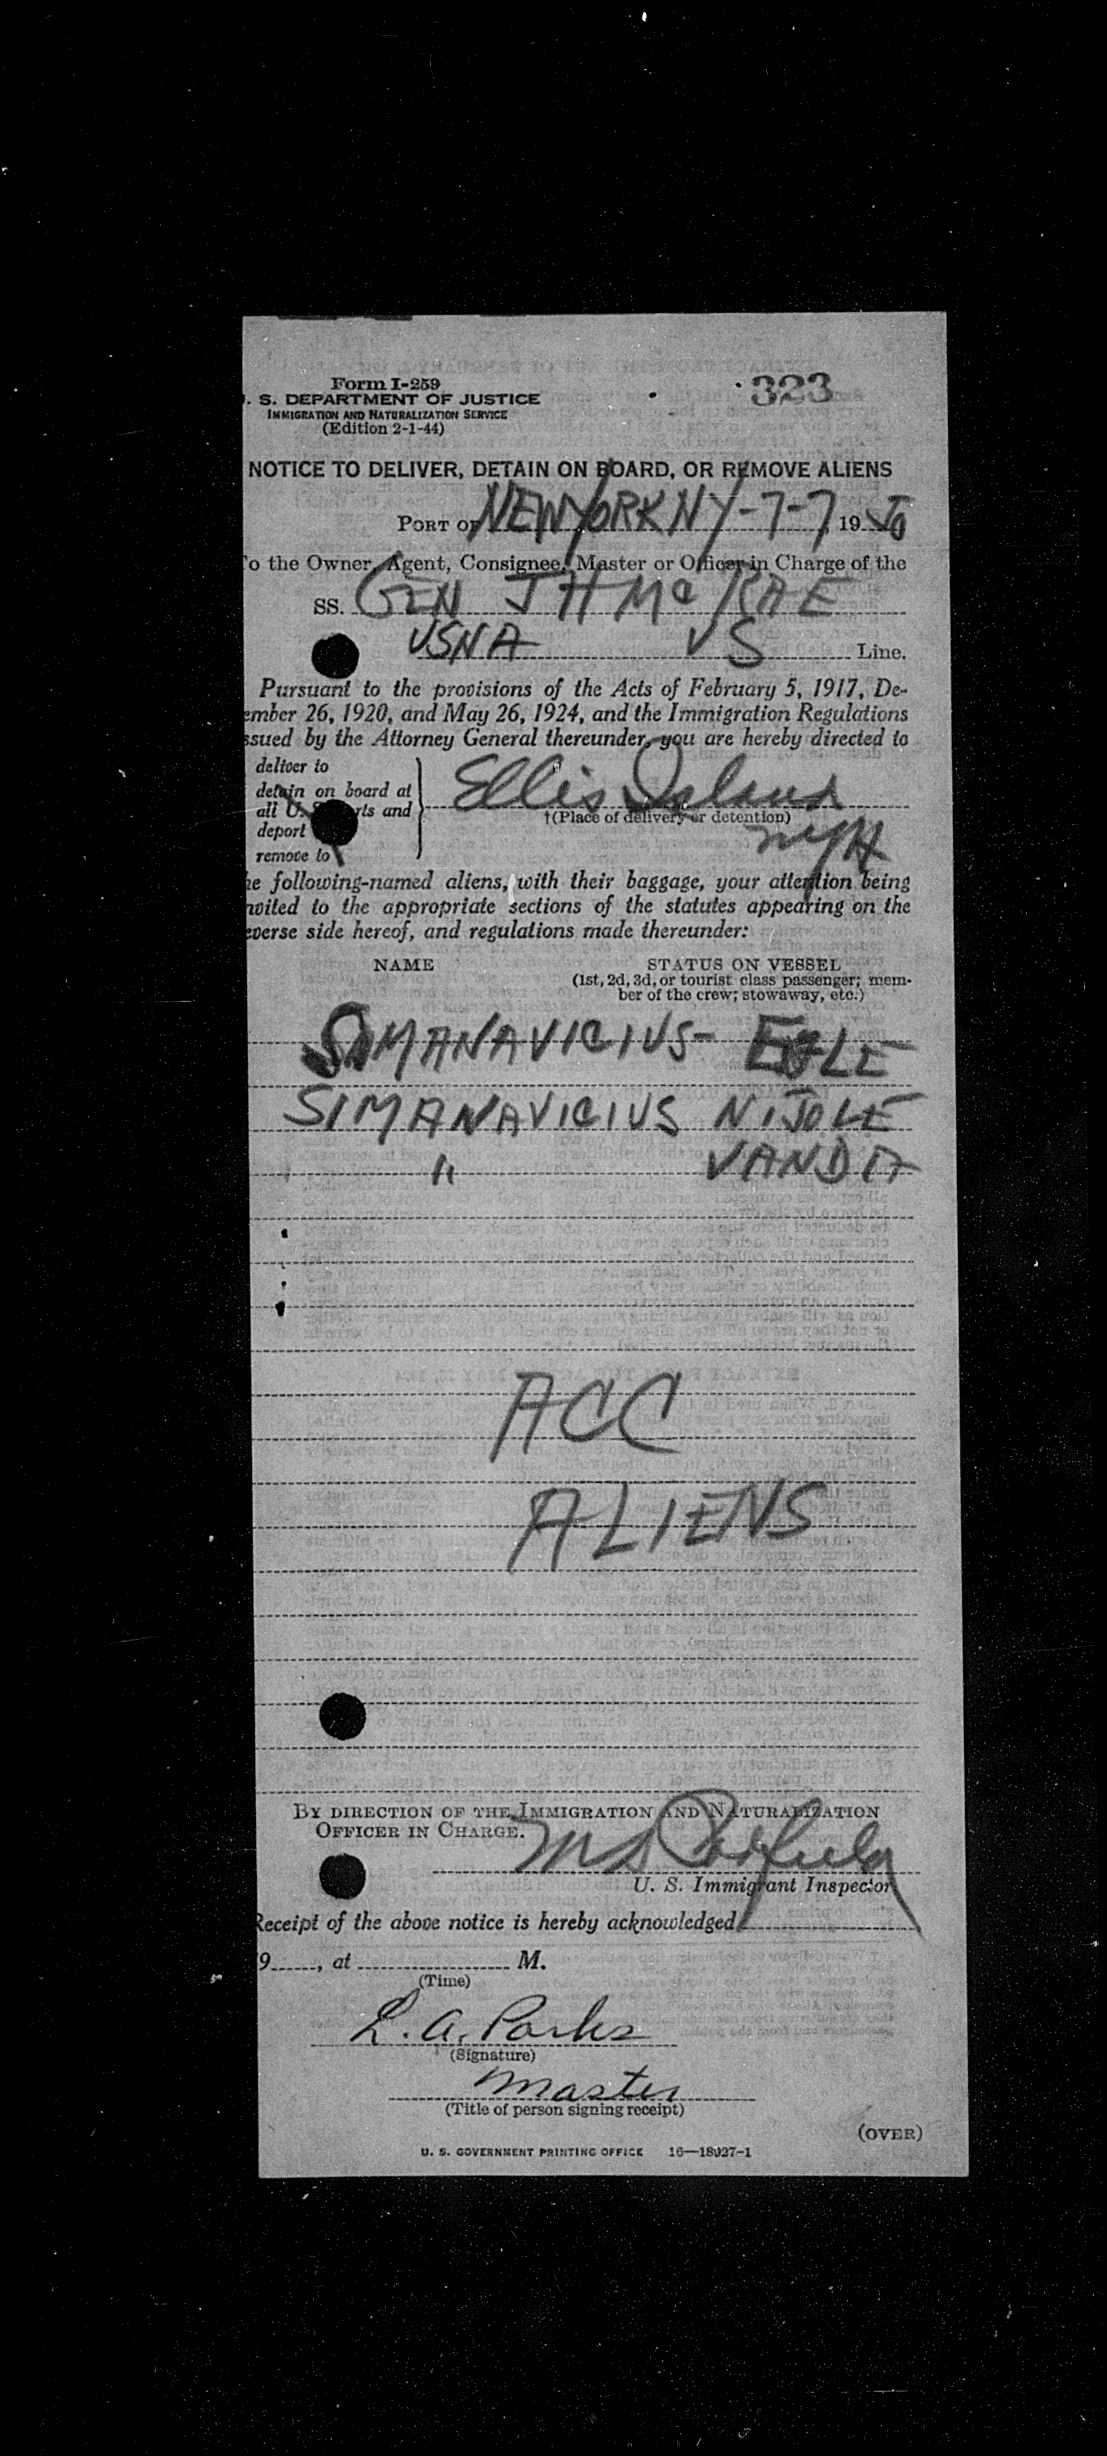 Form I-259
. S. DEPARTMENT OF JUSTICE
IMMIGRATION AND NATURALIZATION SERVICE
(Edition 2-1-44)
323
NOTICE TO DELIVER, DETAIN ON BOARD, OR REMOVE ALIENS
PORT OF NEW YORK NY-7-7 1950
o the Owner, Agent, Consignee, Master or Officer in Charge of the
SS. GEN J H Mc RAE
USNA US Line.
Pursuant to the provisions of the Acts of February 5, 1917, De-
ember 26, 1920, and May 26, 1924, and the Immigration Regulations
ssued by the Attorney General thereunder, you are hereby directed to
deliver to
detain on board at
all U. S. ports and
deport
remove to
Ellis Island
†(Place of delivery or detention)
NYH
he following-named aliens, with their baggage, your attention being
nvited to the appropriate sections of the statutes appearing on the
everse side hereof, and regulations made thereunder:
NAME STATUS ON VESSEL
(1st, 2d, 3d, or tourist class passenger; mem-
ber of the crew; stowaway, etc.)
SIMANAVICIUS- EGLE
SIMANAVICIUS NIJOLE
" VANDA
ACC
ALIENS
BY DIRECTION OF THE IMMIGRATION AND NATURALIZATION
OFFICER IN CHARGE.
U. S. Immigrant Inspector
Receipt of the above notice is hereby acknowledged
9......, at .................... M.
(Time)
L. A. Parks
(Signature)
Master
(Title of person signing receipt)
(OVER)
U. S. GOVERNMENT PRINTING OFFICE 16—18927-1